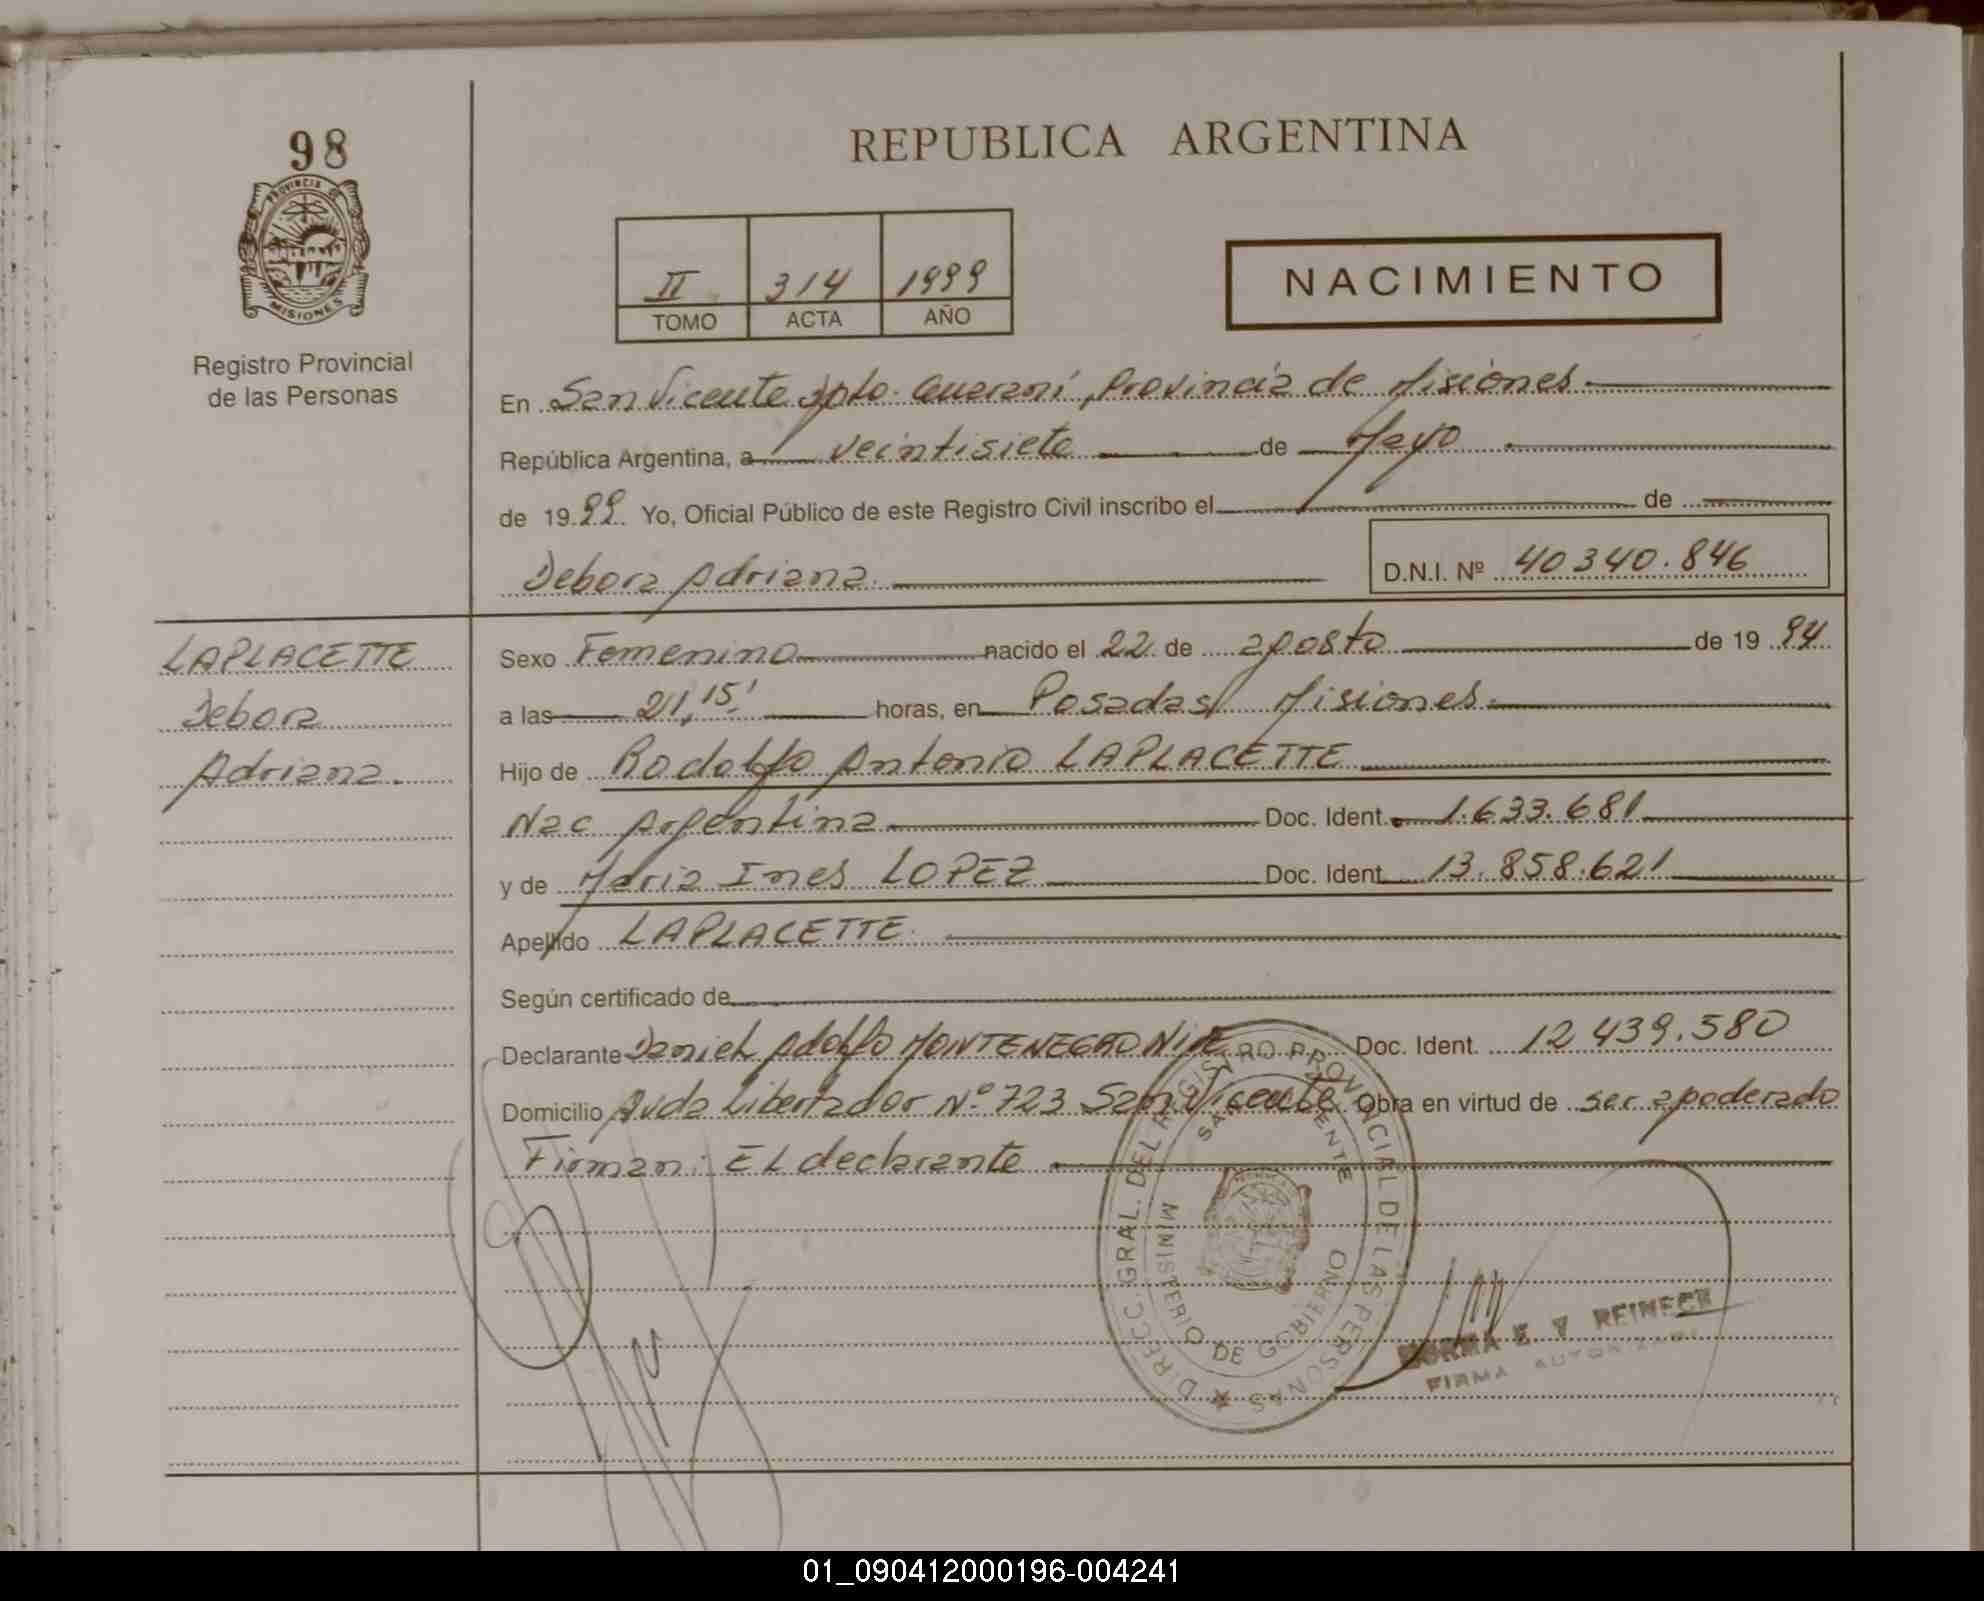 98
PROVINCIA DE
MISIONES
Registro Provincial
de las Personas
REPUBLICA ARGENTINA
II 314 1999
TOMO ACTA AÑO
NACIMIENTO
En San Vicente Dpto. Guarani, Provincia de Misiones
República Argentina, a veintisiete de Mayo
de 1999. Yo, Oficial Público de este Registro Civil inscribo el de
Debora Adriana. D.N.I. Nº 40340.846
LAPLACETTE
Debora
Adriana.
Sexo Femenino nacido el 22 de agosto de 1994
a las 21,15' horas, en Posadas Misiones.
Hijo de Rodolfo Antonio LAPLACETTE
Nac Argentina Doc. Ident. 1.633.681
y de Maria Ines LOPEZ Doc. Ident. 13.858.621
Apellido LAPLACETTE.
Según certificado de
Declarante Daniel Adolfo MONTENEGRO Doc. Ident. 12 439.580
Domicilio Avda Libertador Nº 723 San Vicente Obra en virtud de ser apoderado
Firman: EL declarante
DIRECC. GRAL. DEL REGISTRO PROVINCIAL DE LAS PERSONAS
SAN VICENTE
MINISTERIO DE GOBIERNO
NORMA E V REINECK
FIRMA AUTORIZADA
01_090412000196-004241